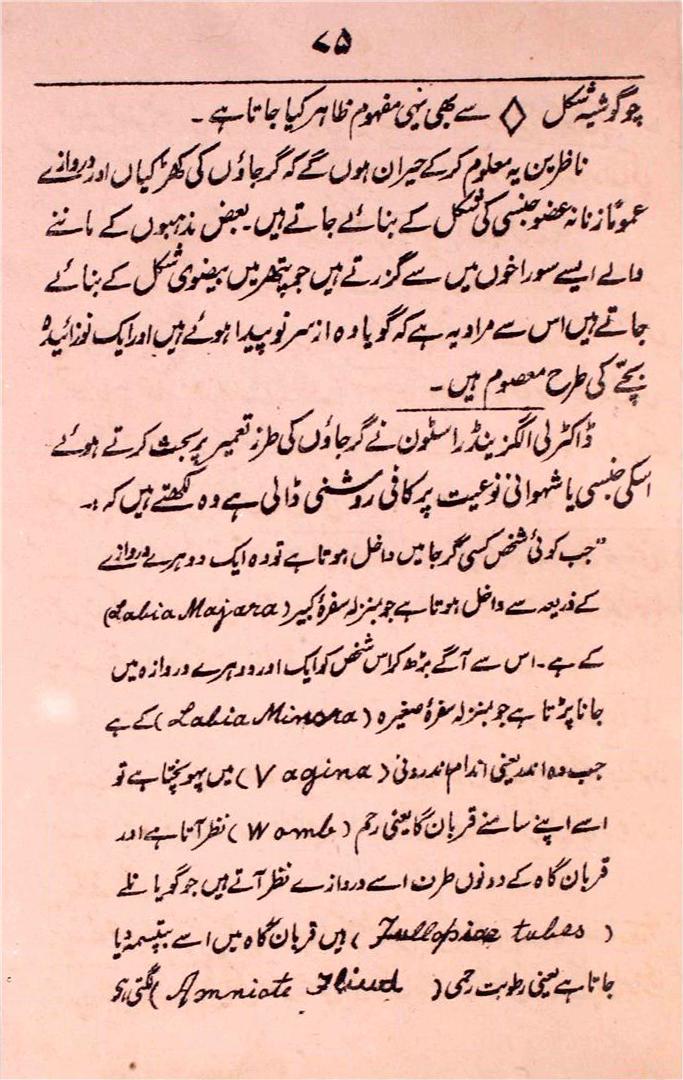 ۷۵
چوگوشیہ شکل ◊ سے بھی یہی مفہوم ظاہر کیا جاتا ہے۔
ناظرین یہ معلوم کرکے حیران ہوں گے کہ گرجاؤں کی کھڑکیاں اور دروازے
عموماً زنانہ عضو جنسی کی شکل کے بنائے جاتے ہیں۔ بعض مذہبوں کے ماننے
والے ایسے سوراخوں میں سے گزرتے ہیں جو پتھر میں بیضوی شکل کے بنائے
جاتے ہیں اس سے مراد یہ ہے کہ گویا وہ از سر نو پیدا ہوئے ہیں اور ایک نوزائیدہ
بچّے کی طرح معصوم ہیں۔
ڈاکٹر لی الگزینڈر اسٹون نے گرجاؤں کی طرز تعمیر پر بحث کرتے ہوئے
اسکی جنسی یا شہوانی نوعیت پر کافی روشنی ڈالی ہے وہ لکھتے ہیں کہ :۔
"جب کوئی شخص کسی گرجا میں داخل ہوتا ہے تو وہ ایک دوہرے دروازے
کے ذریعہ سے داخل ہوتا ہے جو بمنزلہ سفرۂ کبیر (Labia Majara)
کے ہے۔ اس سے آگے بڑھ کر اس شخص کو ایک اور دوہرے دروازہ میں
جانا پڑتا ہے جو بمنزلہ سفرۂ صغیرہ (Labia Minora) کے ہے
جب وہ اندر یعنی اندام اندرونی (Vagina) میں پہونچتا ہے تو
اسے اپنے سامنے قربان گاہ یعنی رحم (Womb) نظر آتا ہے اور
قربان گاہ کے دونوں طرف اسے دروازے نظر آتے ہیں جو گویا نلے
(Fullopiae tubes) ہیں قربان گاہ میں اسے بپتسمہ دیا
جاتا ہے یعنی رطوبت رحمی (Amniote Fliud)